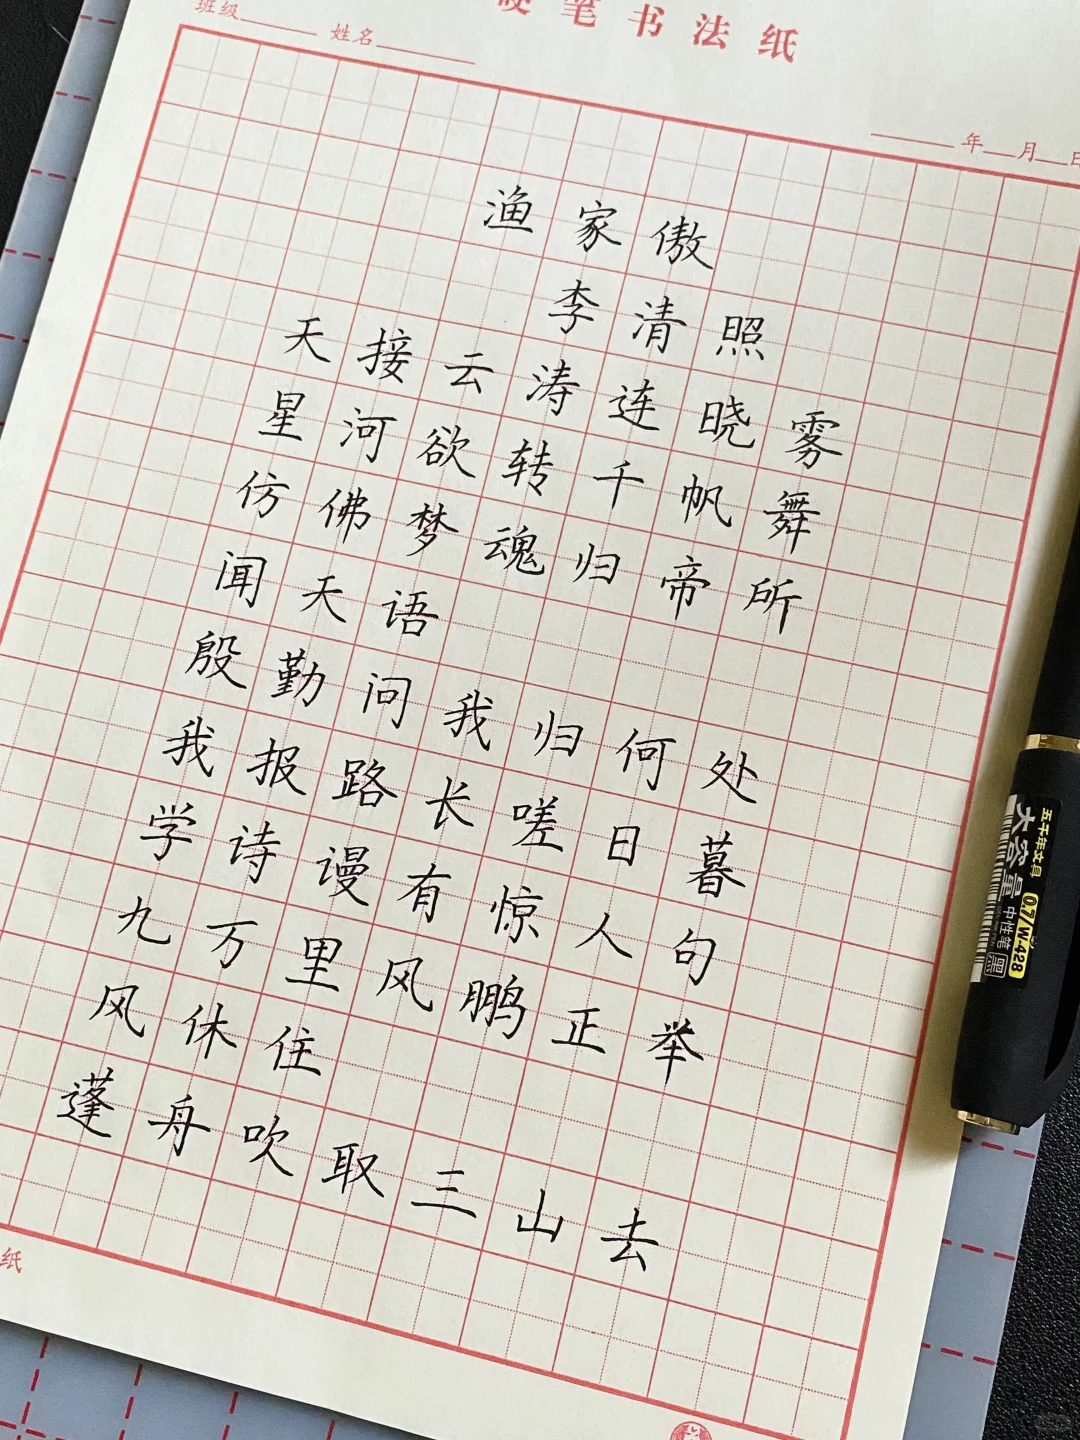 硬笔书法纸
班级 姓名
年 月 日
渔家傲
李清照
天接云涛连晓雾
星河欲转千帆舞
仿佛梦魂归帝所
闻天语
殷勤问我归何处
我报路长嗟日暮
学诗谩有惊人句
九万里风鹏正举
风休住
蓬舟吹取三山去
纸
五千年文具
大容量
0.7/W-428
中性笔 黑